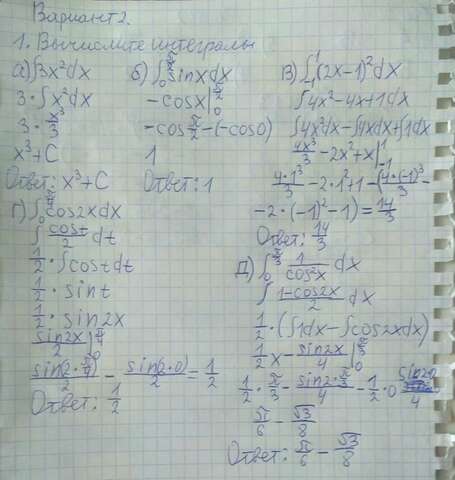 Вариант 2.
1. Вычислите интегралы
а) ∫3x²dx
3·∫x²dx
3·x³/3
x³+C
Ответ: x³+C
б) ∫₀^(π/2) sinxdx
-cosx|₀^(π/2)
-cos π/2 -(-cos0)
1
Ответ: 1
в) ∫₋₁¹(2x-1)²dx
∫4x²-4x+1dx
∫4x²dx-∫4xdx+∫1dx
4x³/3 -2x²+x|₋₁¹
4·1³/3 -2·1²+1-(4·(-1)³/3 -
-2·(-1)²-1)=14/3
Ответ: 14/3
г) ∫₀^(π/4) cos2xdx
∫ cost/2 dt
1/2·∫costdt
1/2·sint
1/2·sin2x
sin2x/2 |₀^(π/4)
sin(2·π/4)/2 - sin(2·0)/2 = 1/2
Ответ: 1/2
д) ∫₀^(π/3) 1/cos²x dx
∫ 1-cos2x/2 dx
1/2·(∫1dx-∫cos2xdx)
1/2x- sin2x/4 |₀^(π/3)
1/2·π/3 - sin2·π/3/4 - 1/2·0 sin2·0/4
π/6 - √3/8
Ответ: π/6 - √3/8